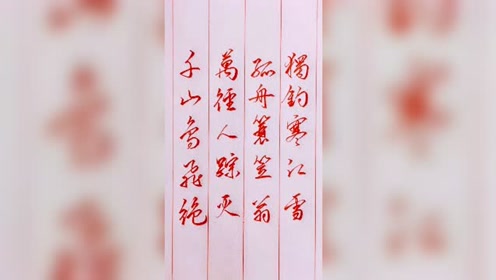 千山鸟飛绝
萬徑人踪灭
孤舟蓑笠翁
獨钓寒江雪